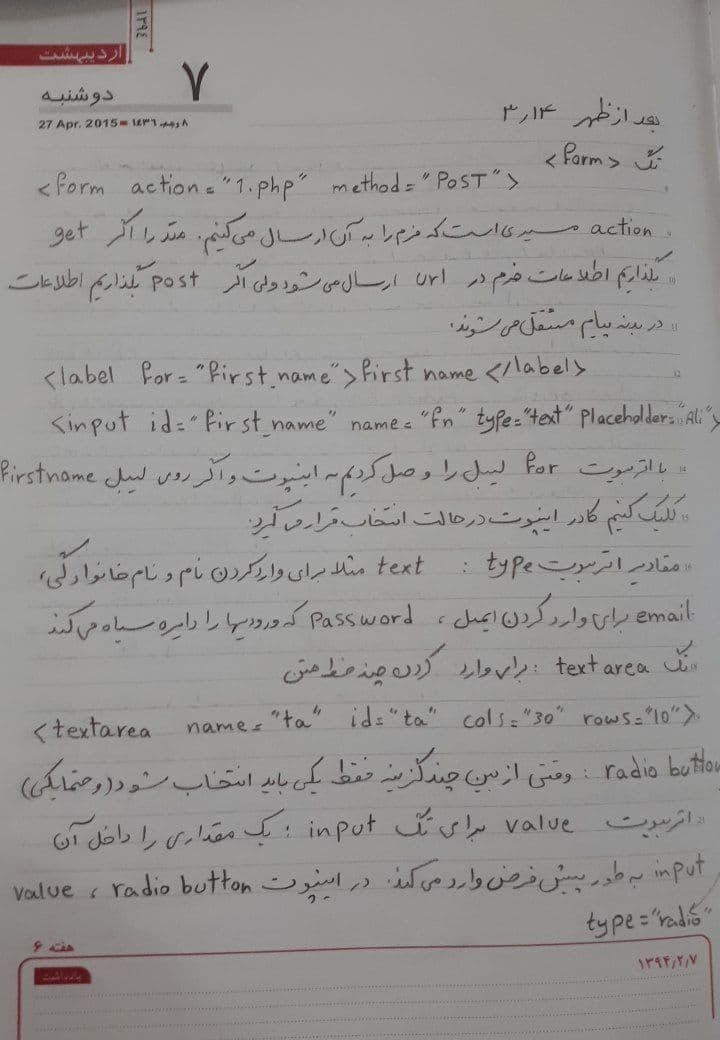 ۱۳۹٤
اردیبهشت
۷
دوشنبه
27 Apr. 2015 ■ ۸ رجب ۱٤۳٦
بعد از ظهر ۳٫۱۴
تگ <form>
<form action="1.php" method="POST">
action مسیری است که فرم را به آن ارسال می‌کنیم. متد را اگر get
بگذاریم اطلاعات فرم در url ارسال می‌شود ولی اگر post بگذاریم اطلاعات
در بدنه پیام منتقل می‌شوند.
<label for="first_name">first name </label>
<input id="first_name" name="fn" type="text" Placeholder="Ali">
با اتریبوت for لیبل را وصل کردیم به اینپوت و اگر روی لیبل firstname
کلیک کنیم کادر اینپوت در حالت انتخاب قرار می‌گیرد.
مقادیر اتریبوت type : text مثلا برای وارد کردن نام و نام خانوادگی،
email برای وارد کردن ایمیل ، Password که ورودیها را دایره سیاه می‌کند
تگ textarea : برای وارد کردن چند خط متن
<textarea name="ta" id="ta" cols="30" rows="10">
radio button : وقتی از بین چند گزینه فقط یکی باید انتخاب شود (و حتما یکی)
اتریبوت value برای تگ input : یک مقداری را داخل آن
input به طور پیش فرض وارد می‌کند. در اینپوت radio button ، value
type="radio"
هفته ۶
۱۳۹۴٫۲٫۷
یادداشت